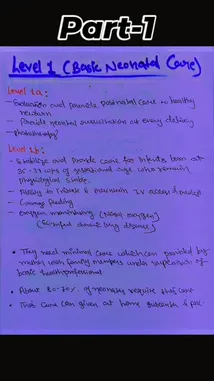 Part-1
Level 1 (Basic Neonatal Care)
Level 1a:
- Evaluation and provide postnatal care to healthy
newborn
- Provide neonatal resuscitation at every delivery
- Phototherapy
Level 1b:
- Stabilize and Provide care for Infants born at
35-37 wks of gestational age who remain
Physiological stable
- Ability to Initiate & maintain IV access &
- Gavage feeding
- Oxygen monitoring (Nasal oxygen)
• They need minimal care which can provided by
mother with family members under supervision of
basic health professional
• About 80-90% of neonates require this care
• This care can given at home, subcentre & PHC.